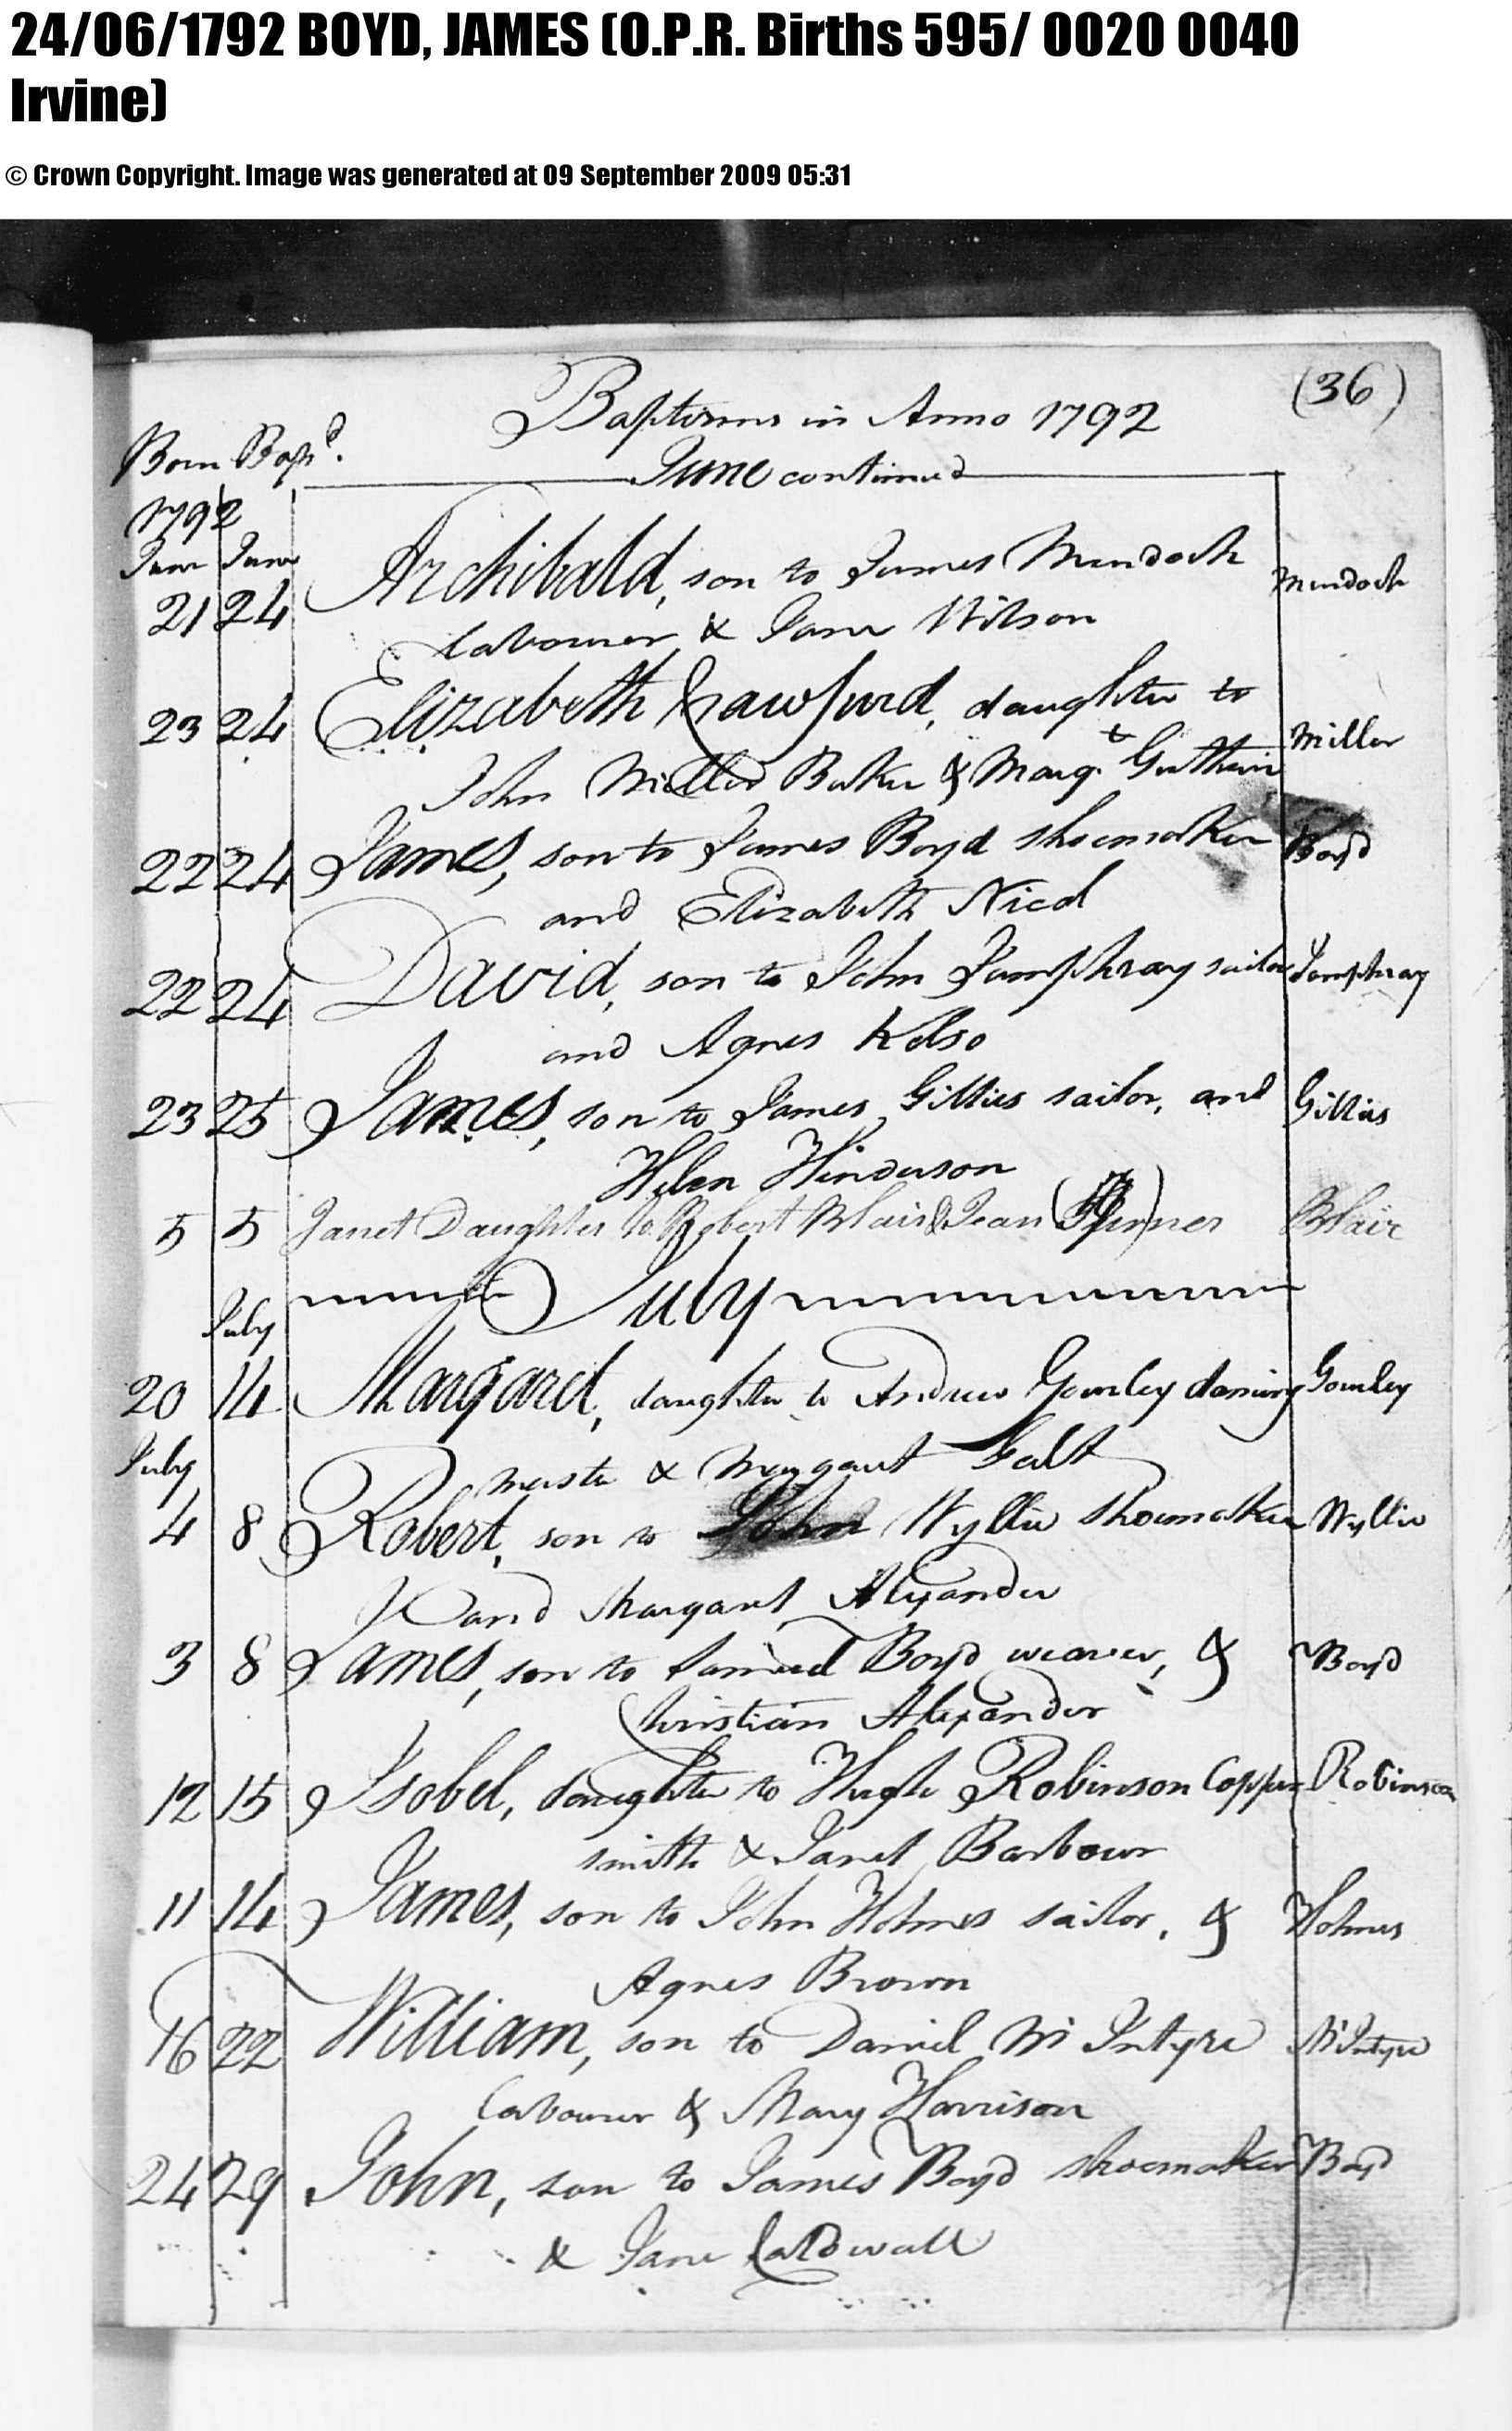 24/06/1792 BOYD, JAMES (O.P.R. Births 595/ 0020 0040
Irvine)
© Crown Copyright. Image was generated at 09 September 2009 05:31
(36)
Baptisms in Anno 1792
Born Bapd.
June continued
1792
June June
21 24 Archibald, son to James Murdoch Murdoch
labourer & Jane Wilson
23 24 Elizabeth Crawfurd, daughter to Miller
John Miller Baker & Margt. Guthrie
22 24 James, son to James Boyd shoemaker Boyd
and Elizabeth Nicol
22 24 David, son to John Jamphray sailor Jamphray
and Agnes Kelso
23 25 James, son to James Gillies sailor, and Gillies
Helen Hinderson
5 5 Janet Daughter to Robert Blair & Jean Blair
July
July
20 14 Margaret, daughter to Andrew Gourley dancing Gourley
July
master & Margaret Galt
4 8 Robert, son to John Wyllie shoemaker Wyllie
and Margaret Alexander
3 8 James, son to Samuel Boyd weaver, & Boyd
Christian Alexander
12 15 Isobel, daughter to Hugh Robinson Copper Robinson
smith & Janet Barbour
11 14 James, son to John Holmes sailor, & Holmes
Agnes Brown
16 22 William, son to Daniel McIntyre McIntyre
labourer & Mary Harrison
24 29 John, son to James Boyd shoemaker Boyd
& Jane Caldwall